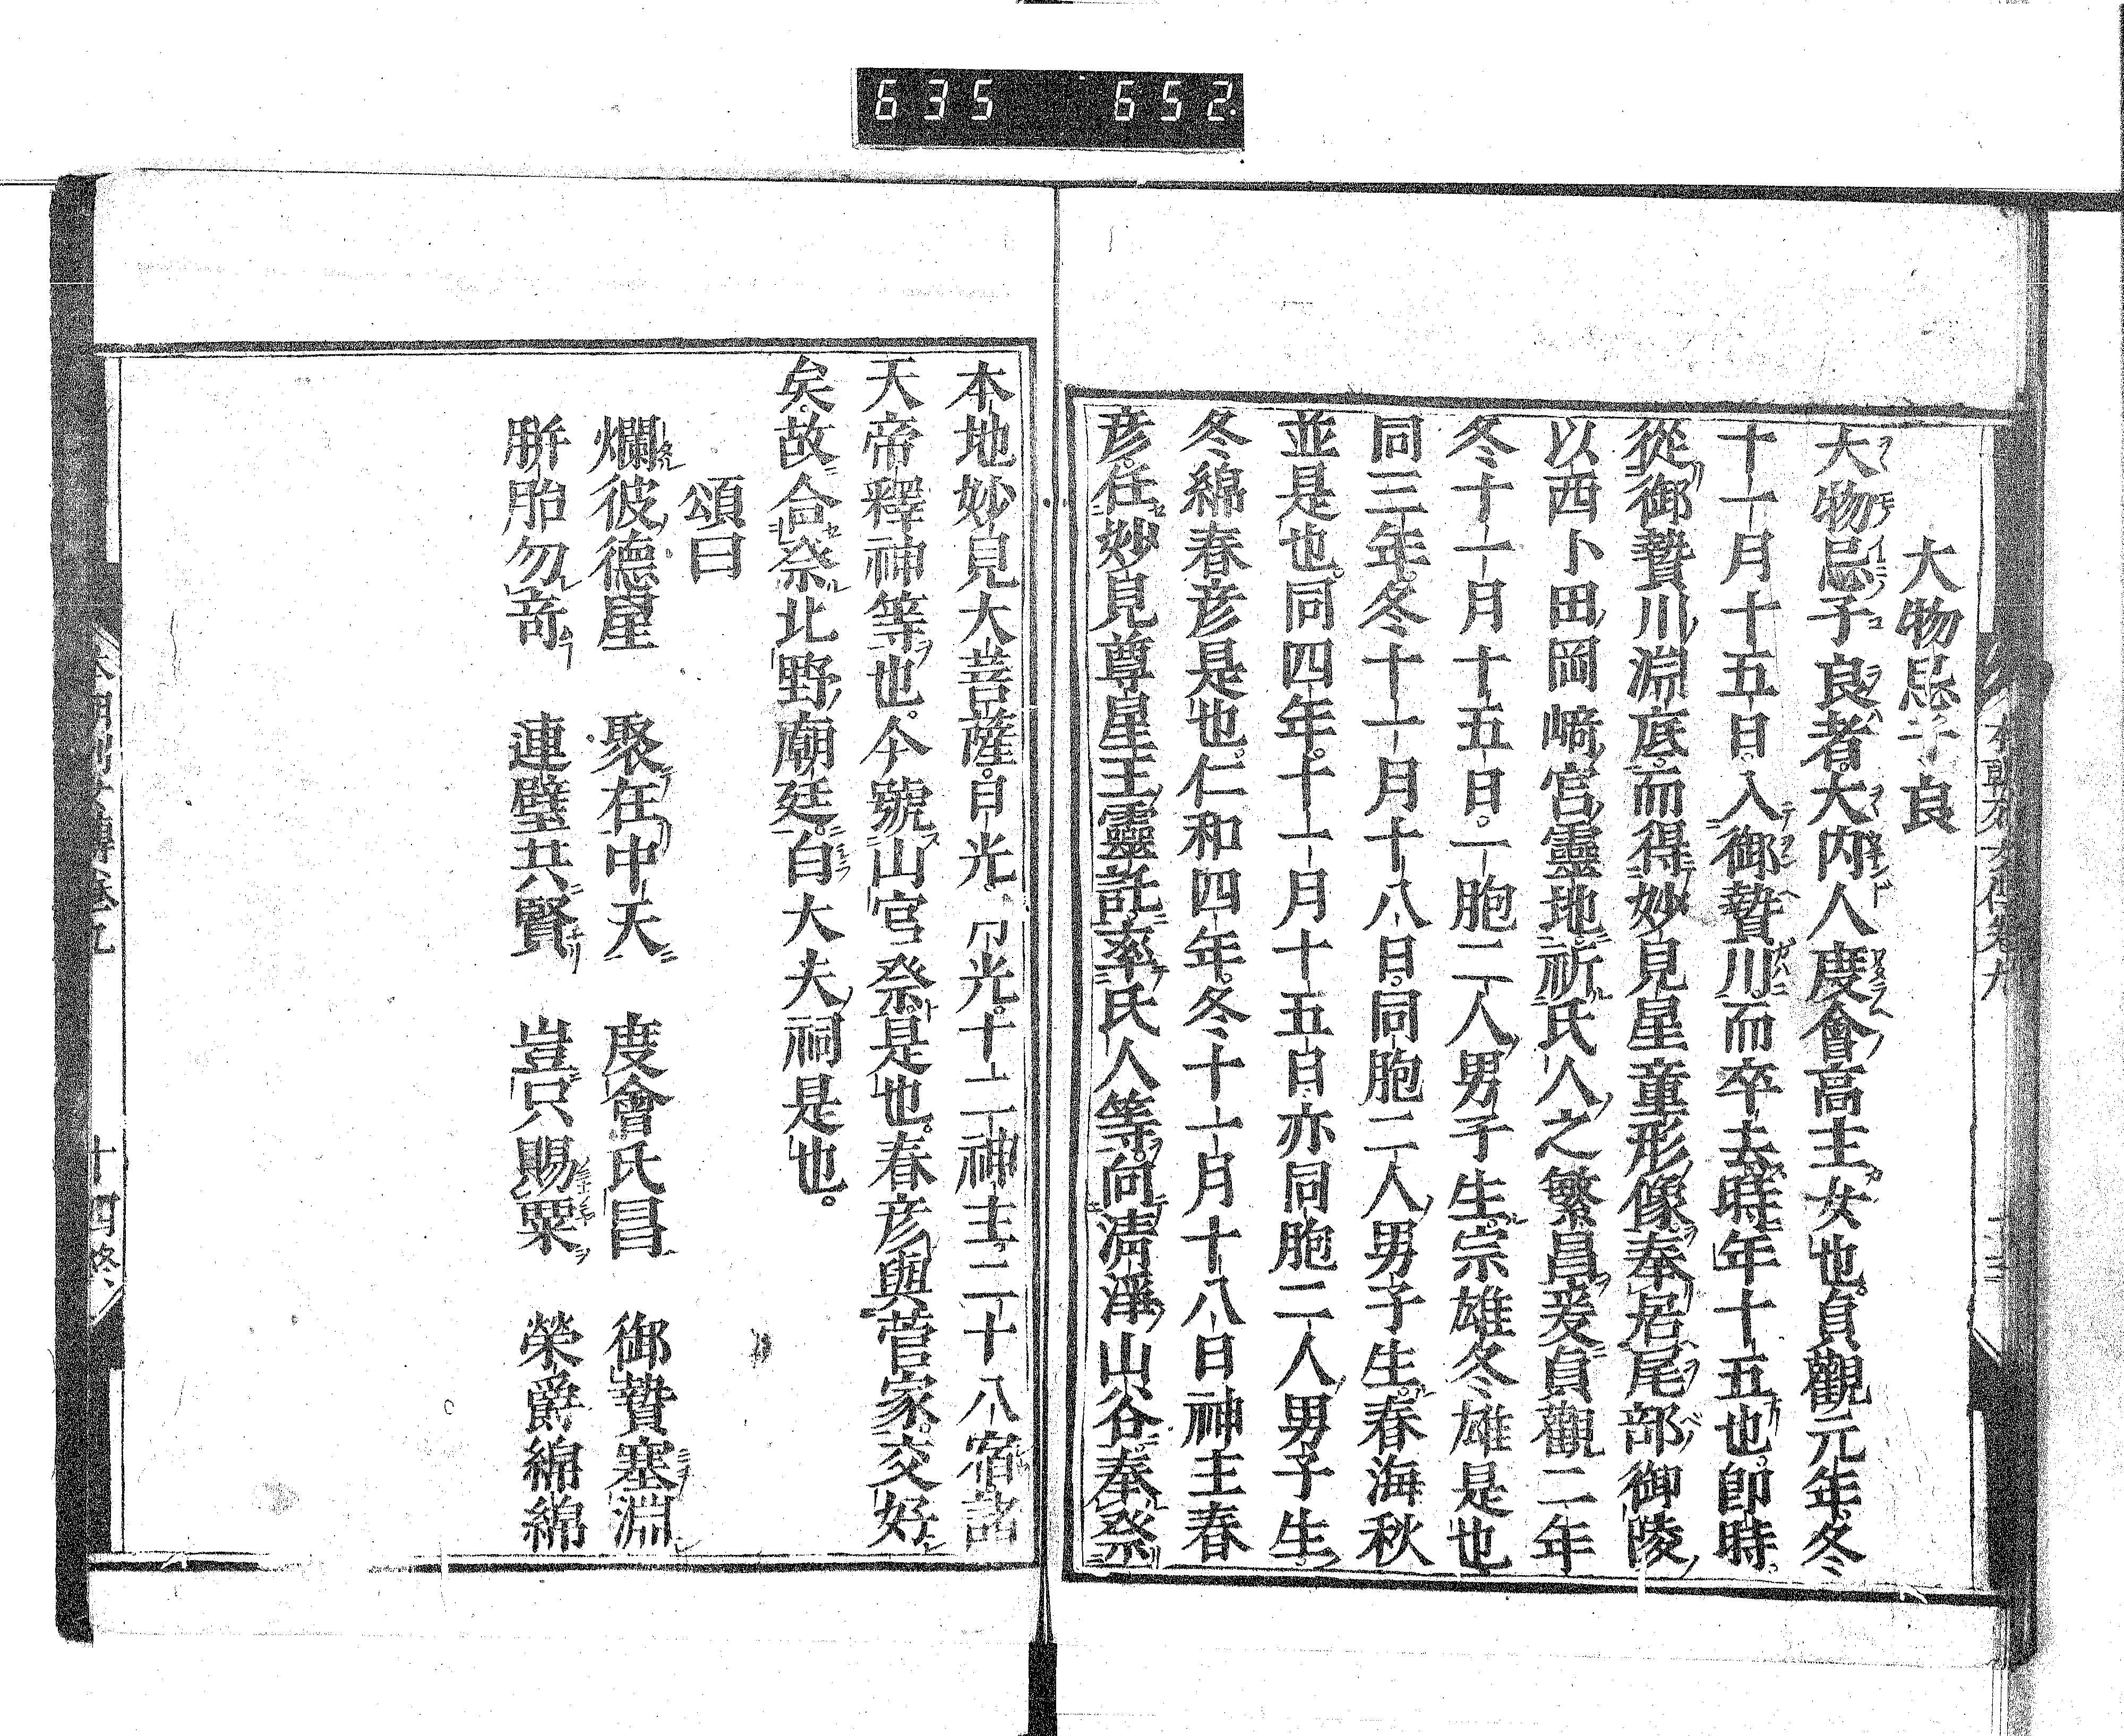 635 652
大物忌子良
大物忌子良者大内人度會高主女也貞觀元年冬
十一月十五日入御贄川而卒去時年十五也卽時
從御贄川淵底而得妙見星童形像奉居尾部御陵
以西卜田岡﨑宮靈地祈氏人之繁昌爰貞觀二年
冬十一月十五日一胞二人男子生宗雄冬雄是也
同三年冬十一月十八日同胞二人男子生春海秋
並是也同四年十一月十五日亦同胞二人男子生
冬綿春彦是也仁和四年冬十一月十八日神主春
彦任妙見尊星王靈託率氏人等向淸淨山谷奉祭
本地妙見大菩薩日光月光十二神主二十八宿諸
天帝釋神等也今號山宮祭是也春彦與菅家交好
矣故合祭北野廟廷白大夫祠是也
頌曰
爛彼德星 聚在中天 度會氏昌 御贄塞淵
騈胎勿竒 連璧共賢 豈只賜粟 榮爵綿綿
十四終